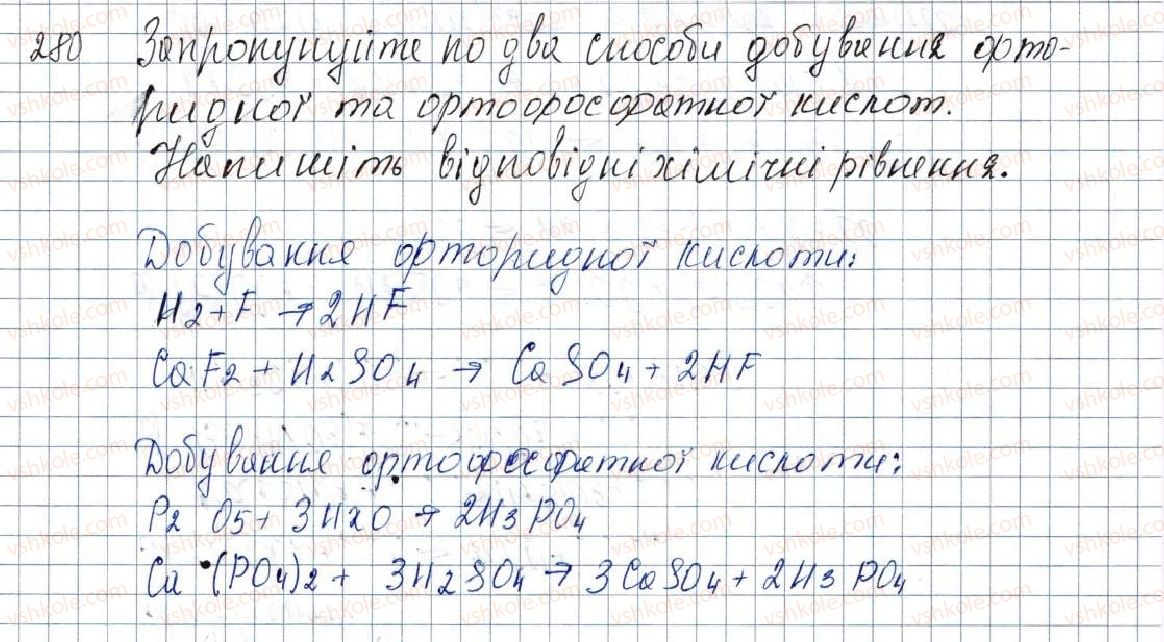 280 Запропонуйте по два способи добування фто-
ридної та ортофосфатної кислот.
Напишіть відповідні хімічні рівнення.
Добування фторидної кислоти:
H2 + F. → 2HF
CaF2 + H2SO4 → CaSO4 + 2HF
Добування ортофосфатної кислоти:
P2O5 + 3H2O → 2H3PO4
Ca (PO4)2 + 3H2SO4 → 3CaSO4 + 2H3PO4